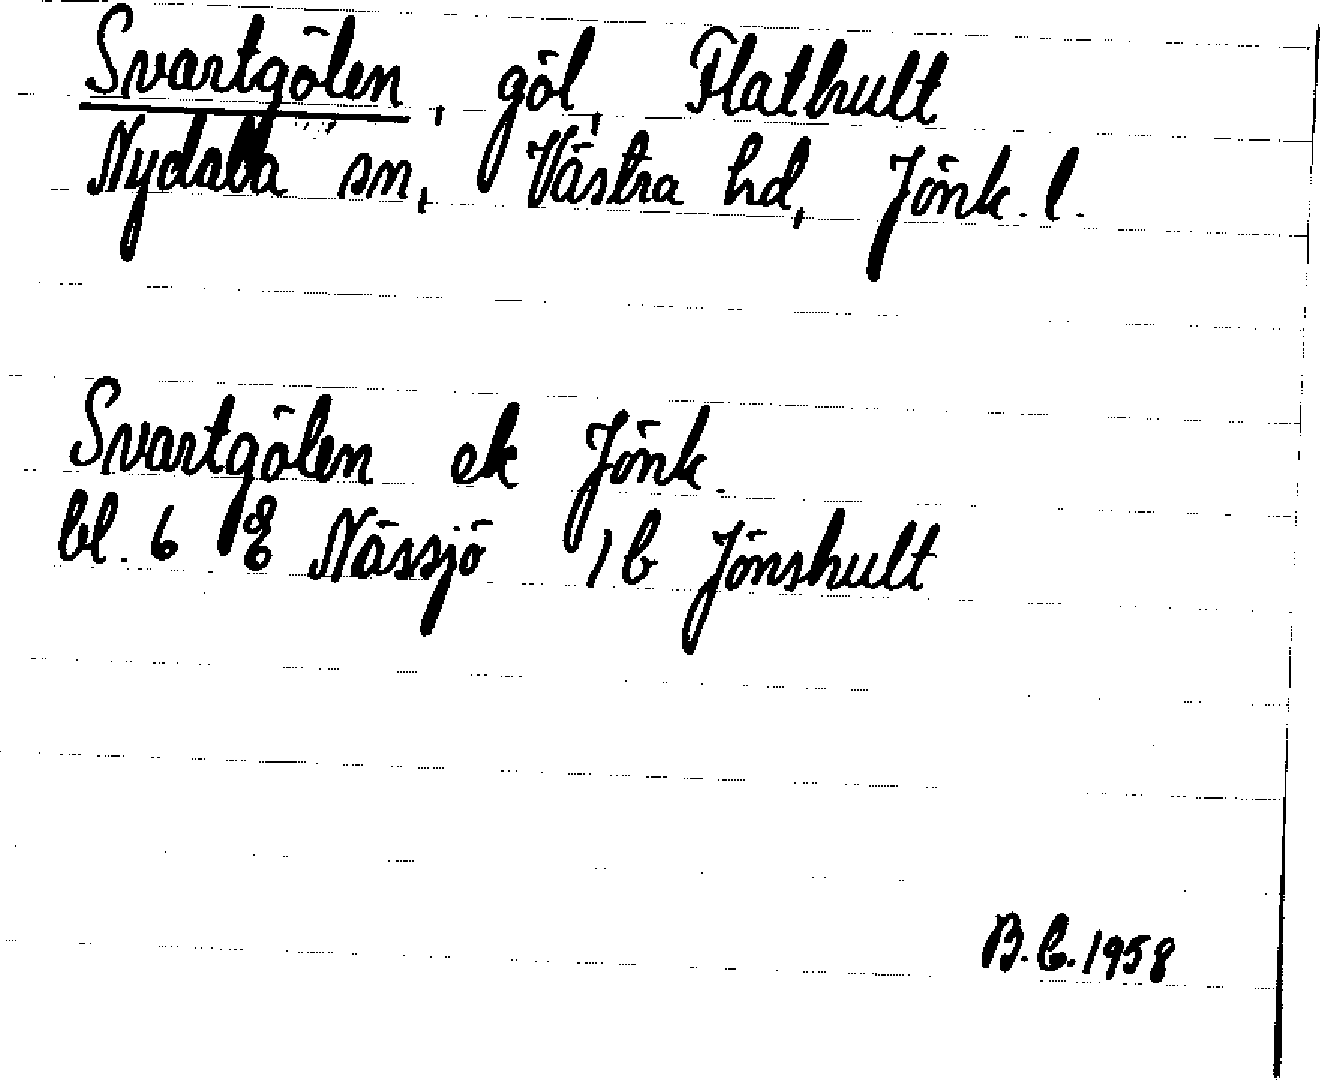 Svartgölen, göl, Flathult
Nydala sn, Västra hd, Jönk. l.
Svartgölen ek Jönk.
bl. 6 E Nässjö 1b Jönshult
B.C. 1958